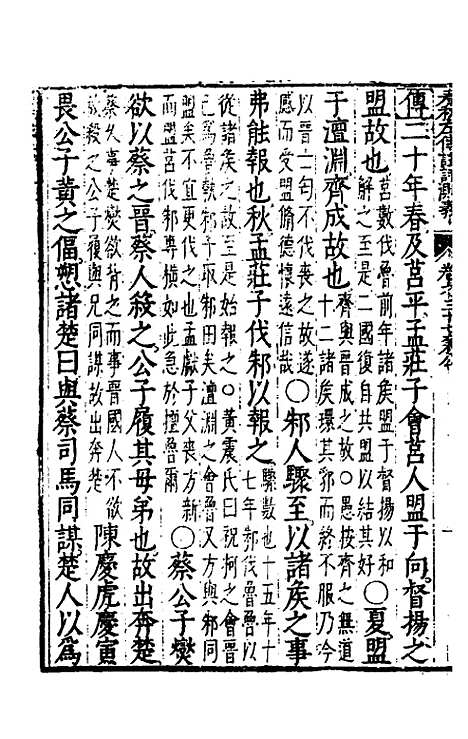 傳二十年春及莒平孟莊子會莒人盟于向督揚之
盟故也莒數伐魯前年諸矦盟于督揚以和
解之至是二國復自共盟以結其好○夏盟
于澶淵齊成故也齊與晉成之故○愚按齊之無道
十二諸矦環其郛而終不服乃今
以晉士匄不伐喪之故遂
感而受盟脩德懷遠信哉○邾人驟至以諸矦之事
弗能報也秋孟莊子伐邾以報之驟數也十五年十
七年邾伐魯魯以
從諸矦之故始報之○黃震氏曰祝柯之會晉
已爲魯執邾子取邾田矣澶淵之會魯又方與邾同
盟矣不宜邾之
而盟莒伐邾專橫如此急於擅魯爾○蔡公子燮
欲以蔡之晉蔡人殺之公子履其母弟也故出奔楚
蔡久事楚燮欲背之而事晉國人不欲
故殺之公子履與兄同謀故出奔楚陳慶虎慶寅
畏公子黃之偪愬諸楚曰與蔡司馬同謀楚人以爲